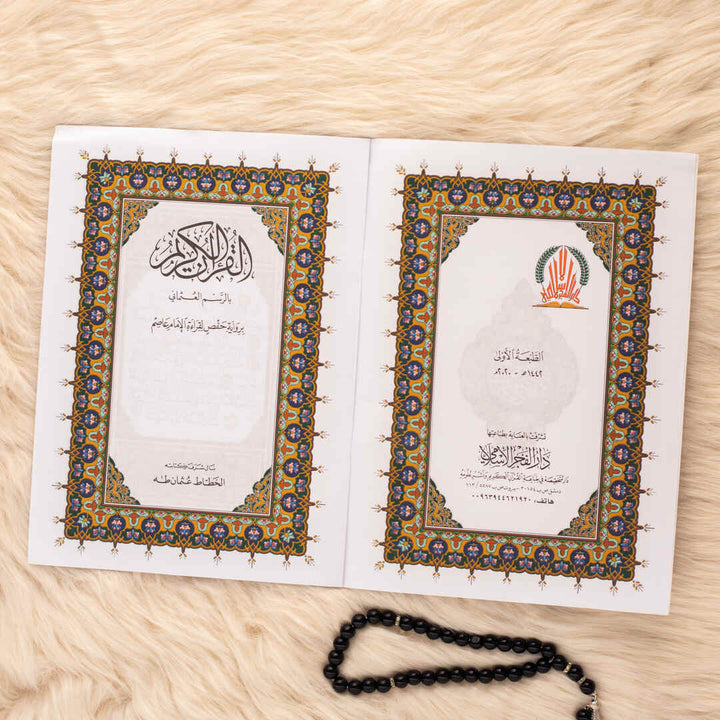 القرآن الكريم
بالرسم العثماني
برواية حفص لقراءة الإمام عاصم
نال شرف كتابته
الخطاط عثمان طه
الطبعة الأولى
١٤٤٢هـ - ٢٠٢٠م
تشرفت بالعناية بطباعتها
دار الفجر الإسلامي
دار متخصصة في طباعة القرآن الكريم
هاتف: ٠٠٩٦٣٩٤٤٦٢١٩٢٠